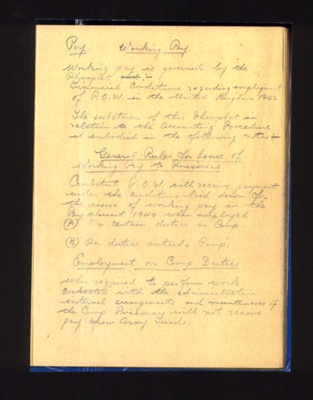 Pay. Working Pay
Working pay is governed by the
Pamphlet
Financial Conditions regarding employment
of P.O.W. in the United Kingdom 1942
The substance of this Pamphlet in
relation to the Accounting Procedure
is embodied in the following notes
General Rules for Issue of
Working Pay to Prisoners
P.O.W. will receive payment
under the conditions laid down for
the issue of working pay in the
Pay Warrant 1940 when employed
(A) On certain duties in Camp.
(B) On duties outside Camp.
Employment on Camp Duties
When required to perform work
connected with the administration
internal arrangements and maintenance of
the Camp Prisoners will not receive
pay from Army Funds.